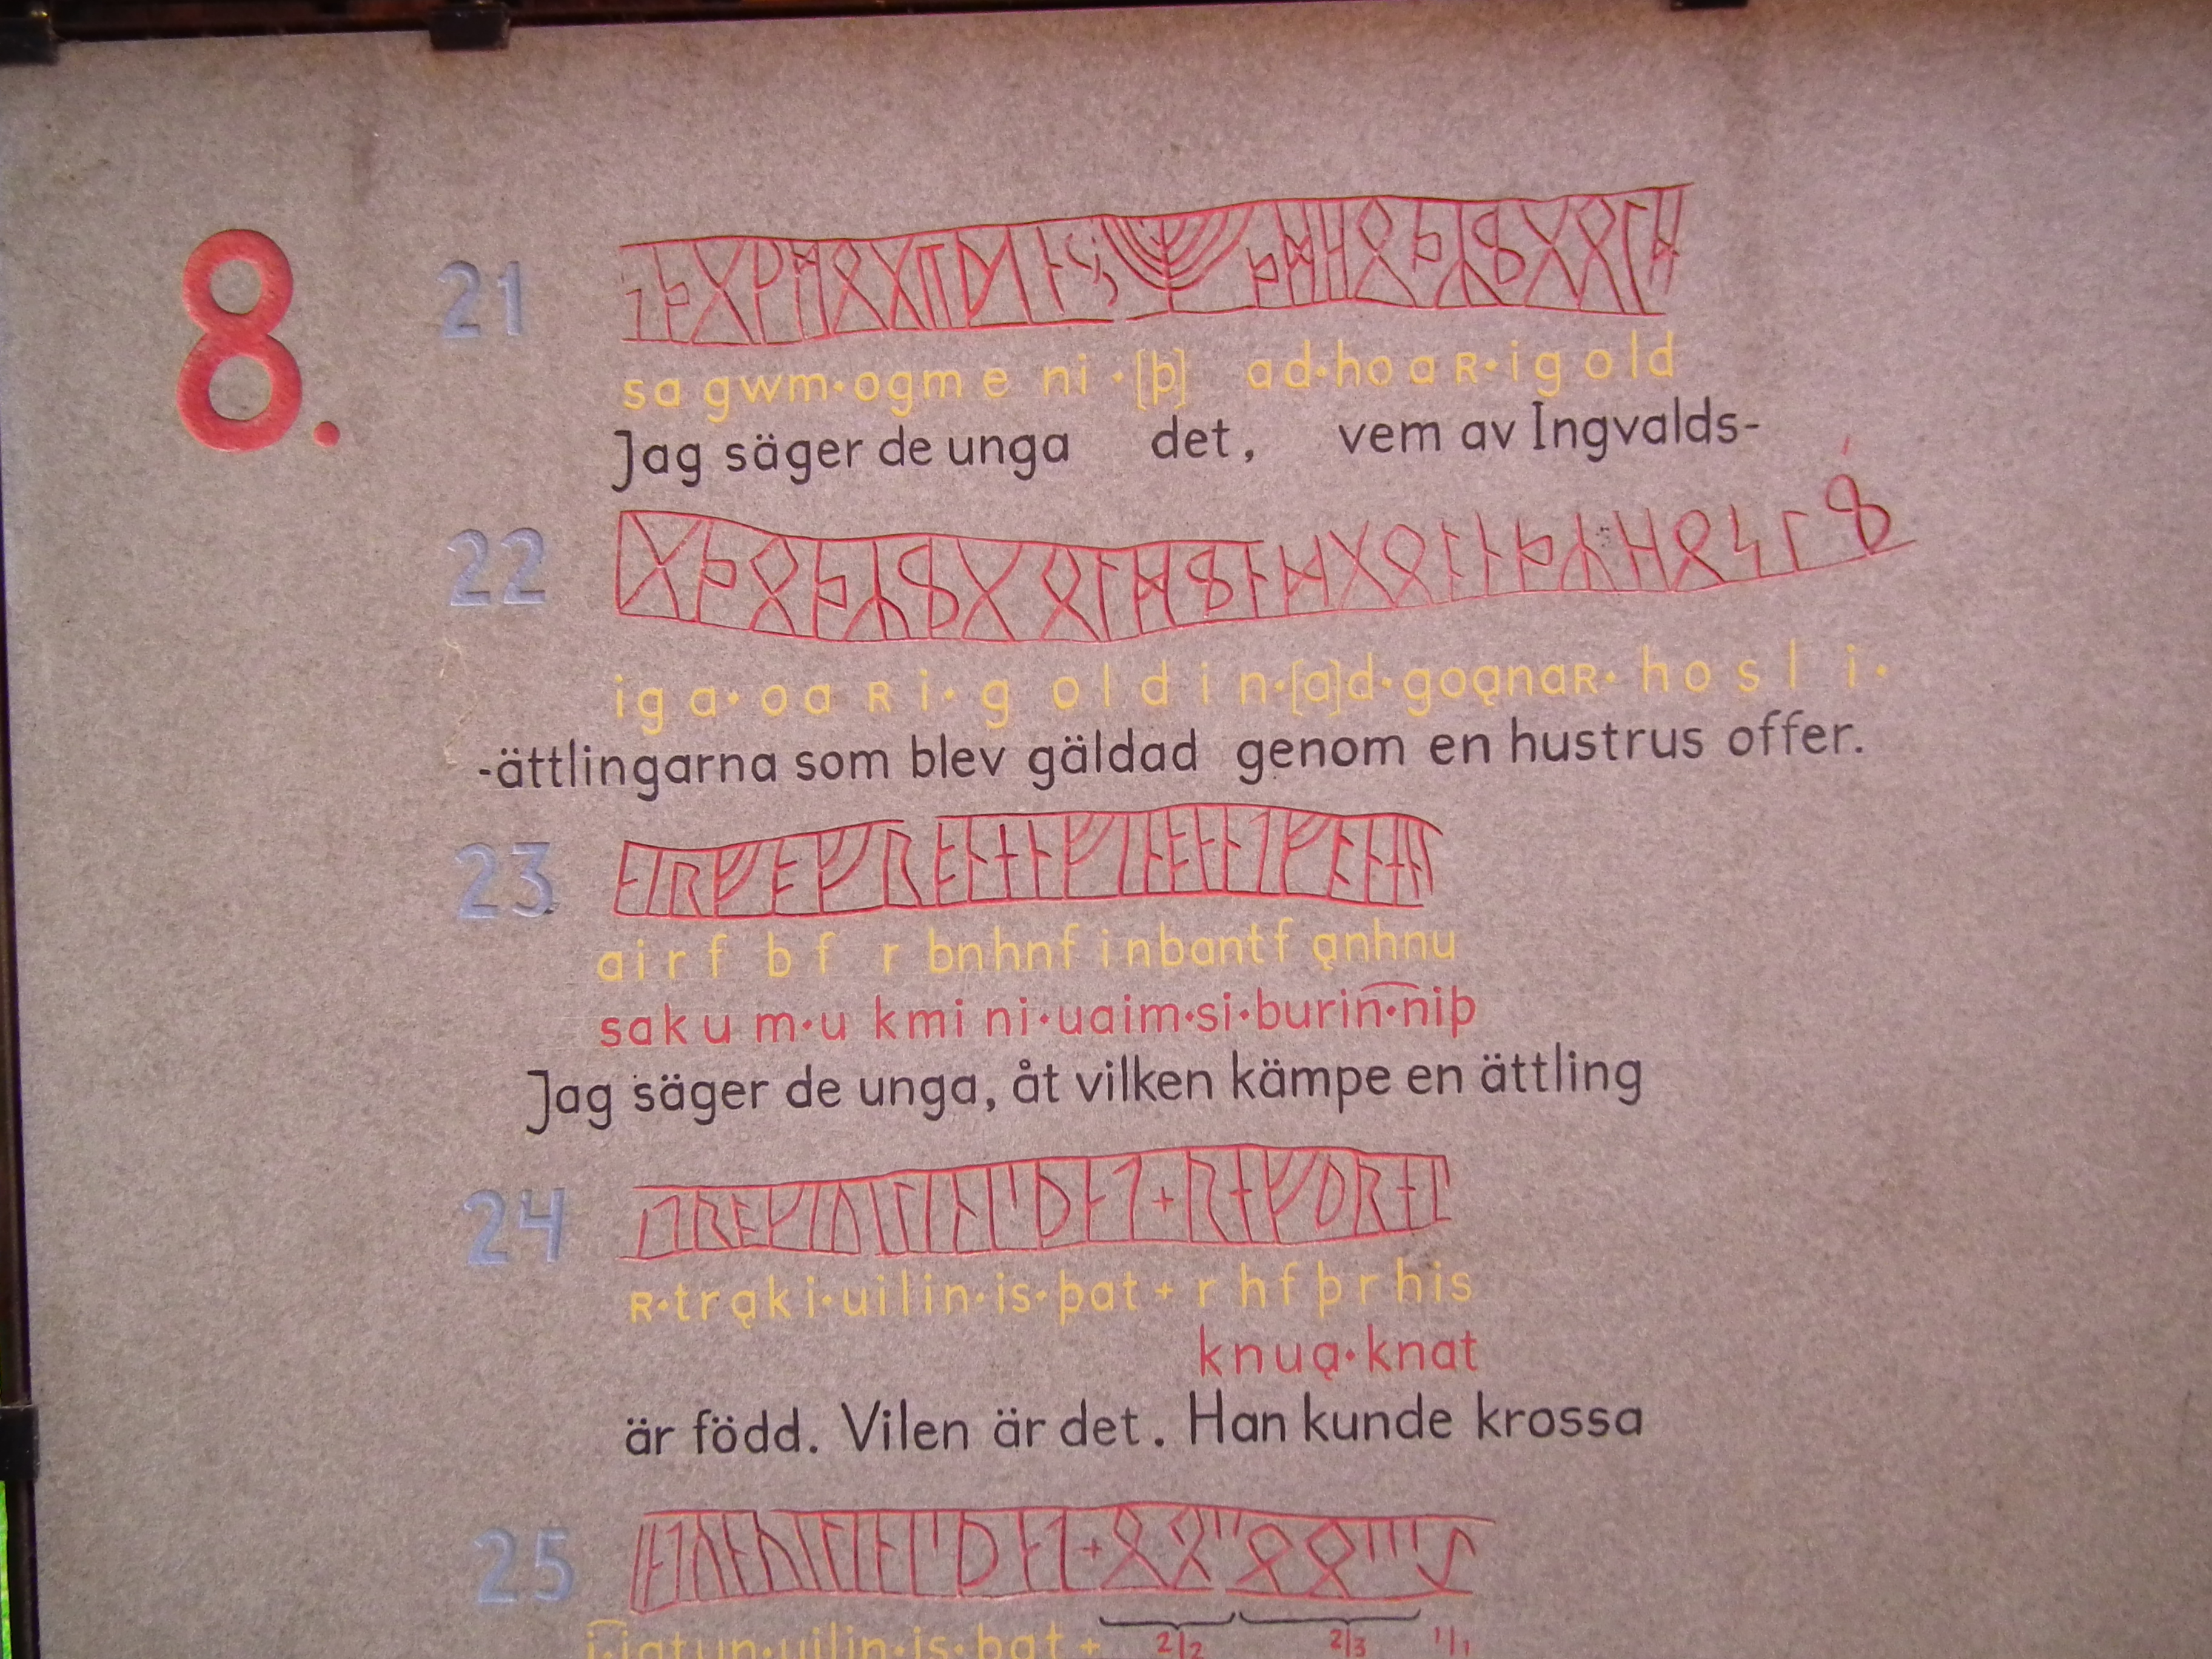 8.
21
sagwm·ogmeni·[þ] ad·hoaʀ·igold
Jag säger de unga det, vem av Ingvalds-
22
iga·oaʀi·goldin·[a]d·goąnaʀ·hosli·
-ättlingarna som blev gäldad genom en hustrus offer.
23
airfbfrbnhnfinbantfąnhnu
sakum·ukmini·uaim·si·burin·niþ
Jag säger de unga, åt vilken kämpe en ättling
24
ʀ·trąki·uilin·is·þat + rhfþrhis
knuą·knat
är född. Vilen är det. Han kunde krossa
25
i·iatun·uilin·is·þat + 2/2 2/3 1/1